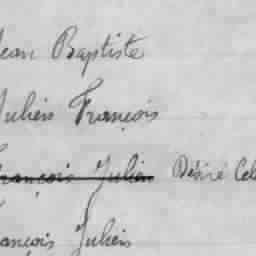 Jean Baptiste
Julien François
François Julien Désiré Cel
François Julien